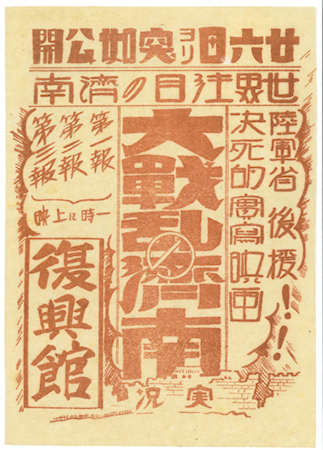 廿六日ヨリ突如公開
世界注目の濟南
陸軍省 後援!!
決死的實寫映画
大戰乱の濟南
実况
第一報
第二報
第三報
一時に上映
復興館